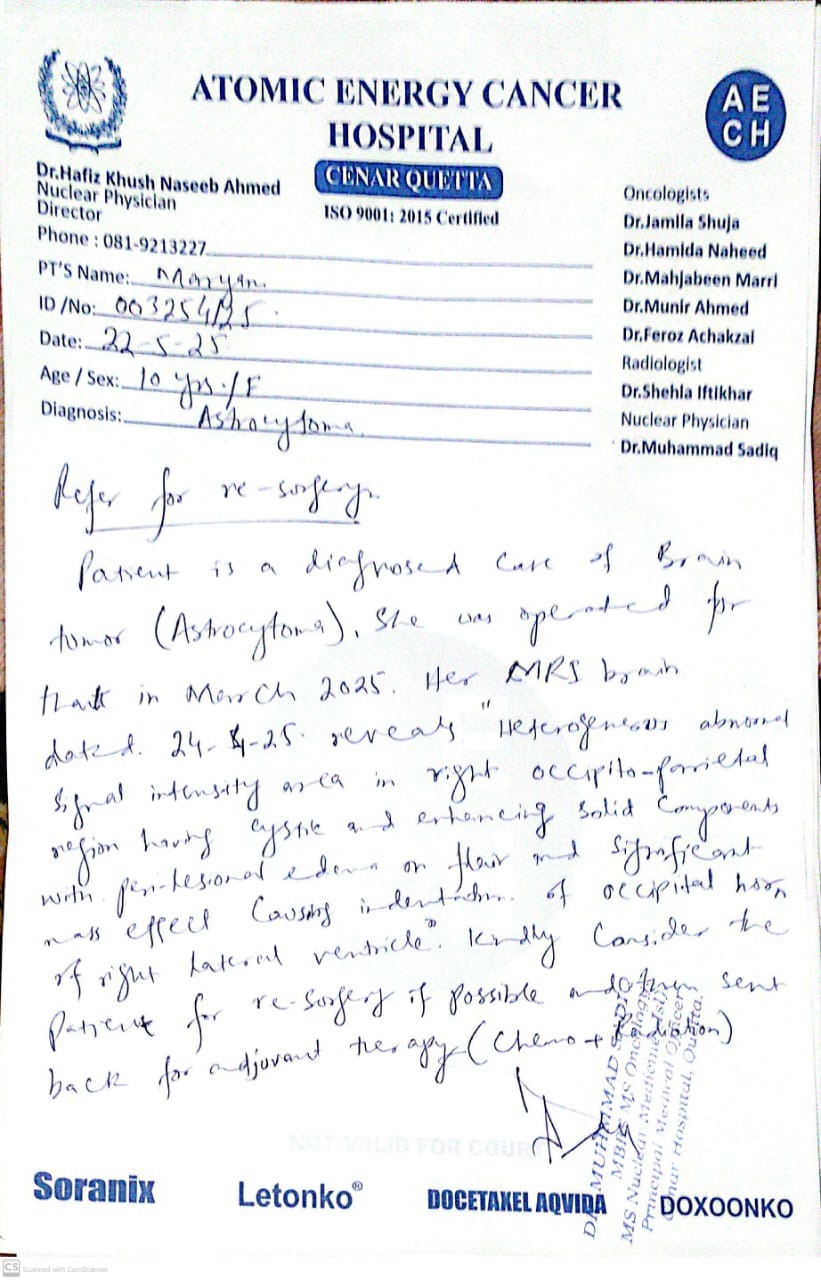 ATOMIC ENERGY CANCER
HOSPITAL
CENAR QUETTA
ISO 9001: 2015 Certified
AE
CH
Dr.Hafiz Khush Naseeb Ahmed
Nuclear Physician
Director
Phone : 081-9213227
PT'S Name: Maryam
ID /No: 003254/25
Date: 22-5-25
Age / Sex: 10 yrs / F
Diagnosis: Astrocytoma
Oncologists
Dr.Jamila Shuja
Dr.Hamida Naheed
Dr.Mahjabeen Marri
Dr.Munir Ahmed
Dr.Feroz Achakzai
Radiologist
Dr.Shehla Iftikhar
Nuclear Physician
Dr.Muhammad Sadiq
Refer for re-surgery.
Patient is a diagnosed case of Brain
tumor (Astrocytoma). She was operated for
that in March 2025. Her MRI brain
dated. 24-4-25. reveals "Heterogeneous abnormal
signal intensity area in right occipito-parietal
region having cystic and enhancing solid components
with peri-lesional edema on flair and significant
mass effect causing indentation of occipital horn
of right lateral ventricle". Kindly consider the
patient for re-surgery if possible and then sent
back for adjuvant therapy (Chemo + Radiation)
DR. MUHAMMAD SADIQ
MBBS MS Oncology
MS Nuclear Medicine (Isl)
Principal Medical Officer
Cenar Hospital, Quetta.
NOT VALID FOR COURT
Soranix
Letonko®
DOCETAXEL AQVIDA
DOXOONKO
CS Scanned with CamScanner